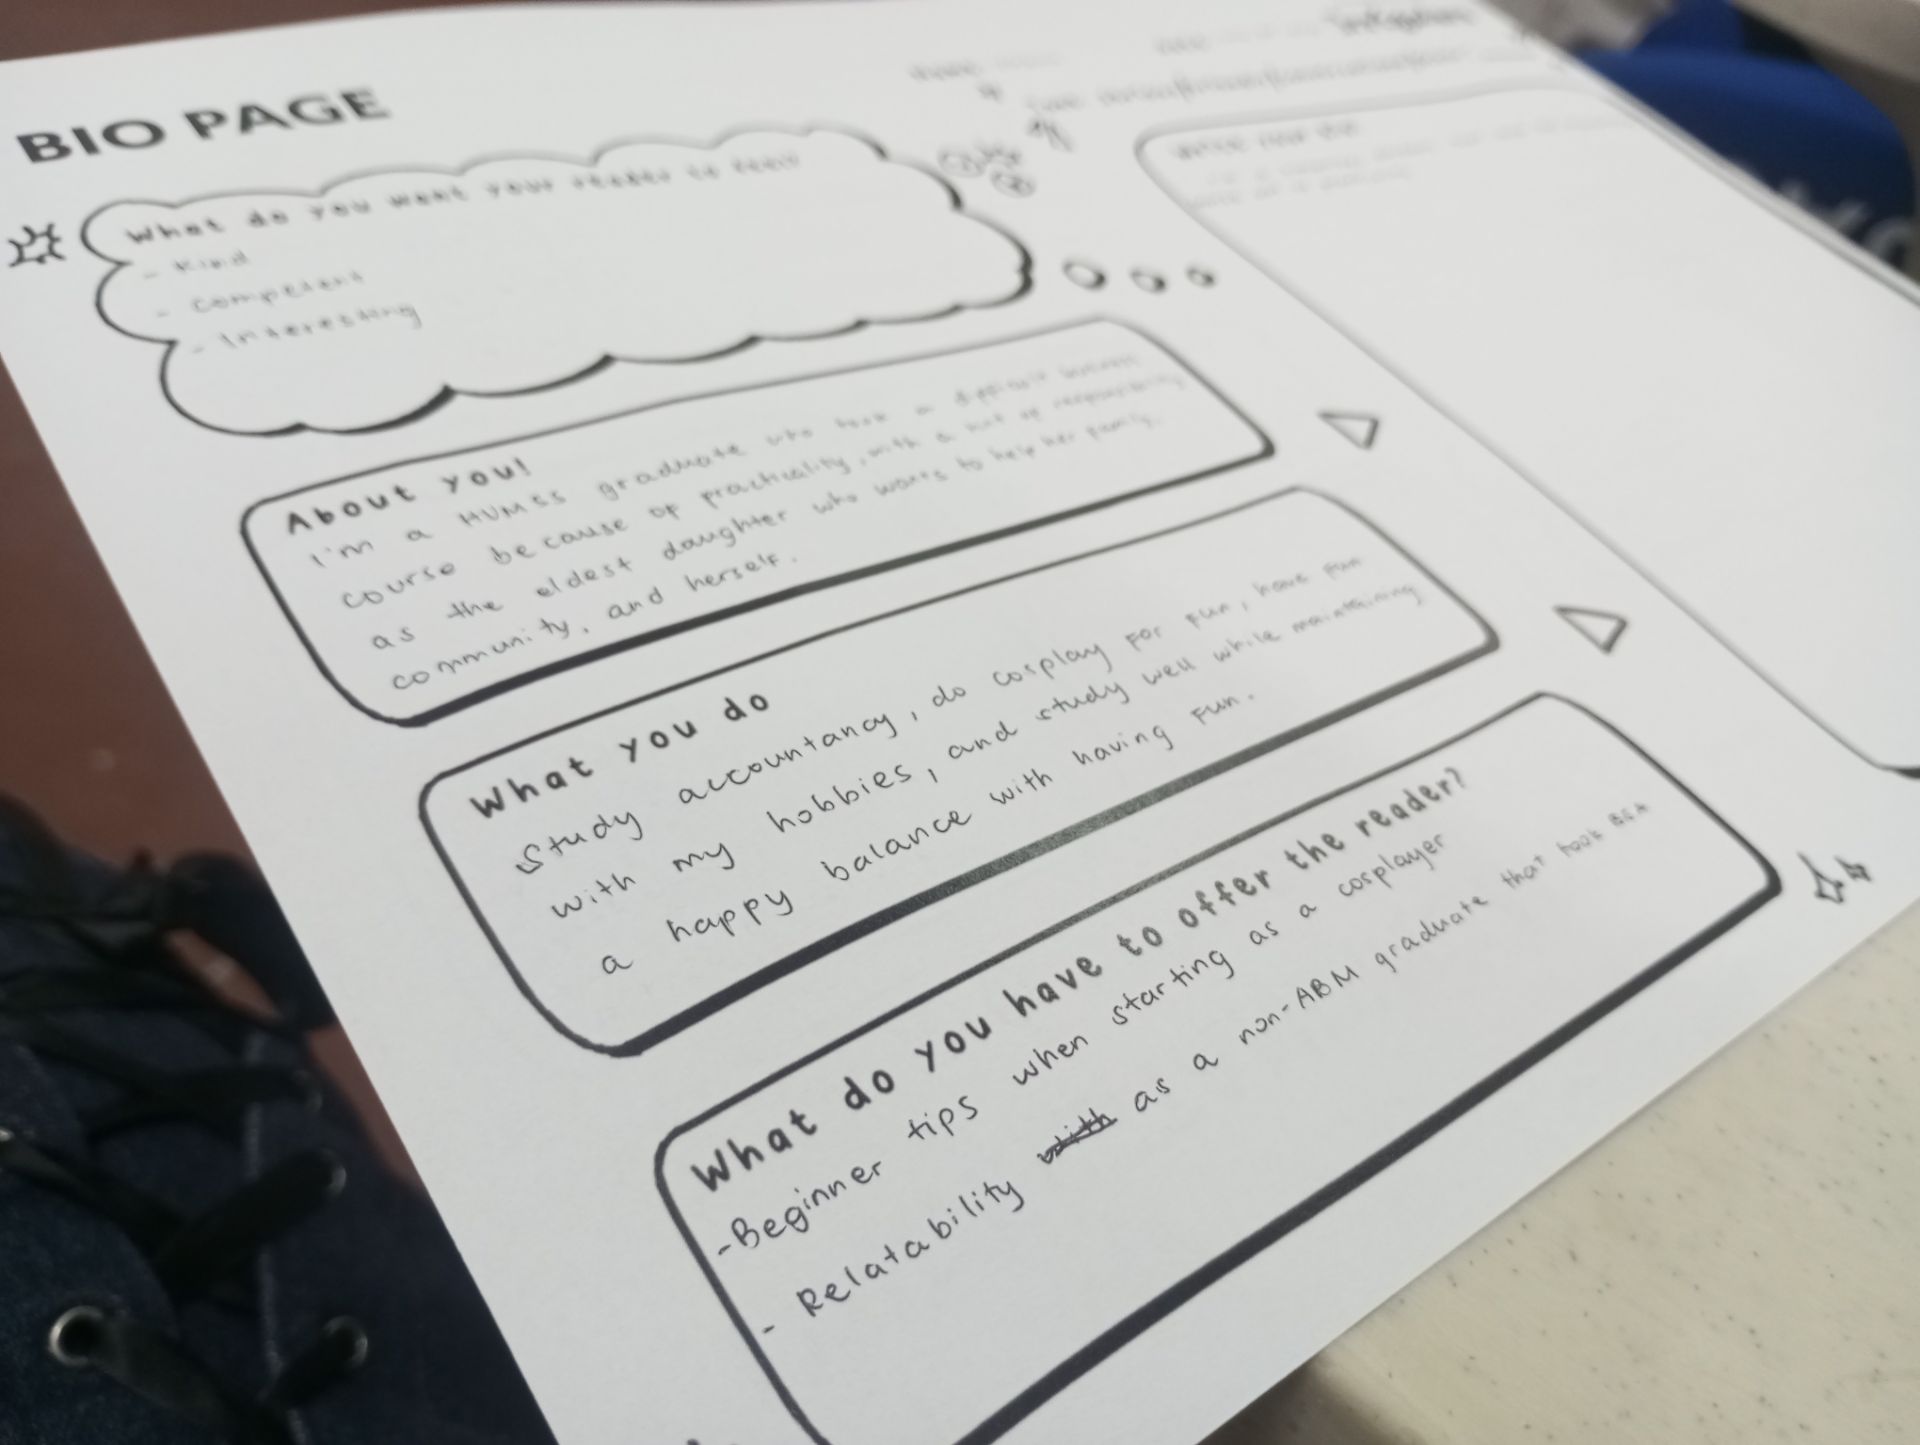 BIO PAGE
What do you want your reader to feel?
- Kind
- Competent
- Interesting
About you!
I'm a HUMSS graduate who took a difficult business
course because of practicality, with a hint of responsibility
as the eldest daughter who wants to help her family,
community, and herself.
What you do
Study accountancy, do cosplay for fun, have fun
with my hobbies, and study well while maintaining
a happy balance with having fun.
What do you have to offer the reader?
-Beginner tips when starting as a cosplayer
- Relatability with as a non-ABM graduate that took BSA
Write your bio